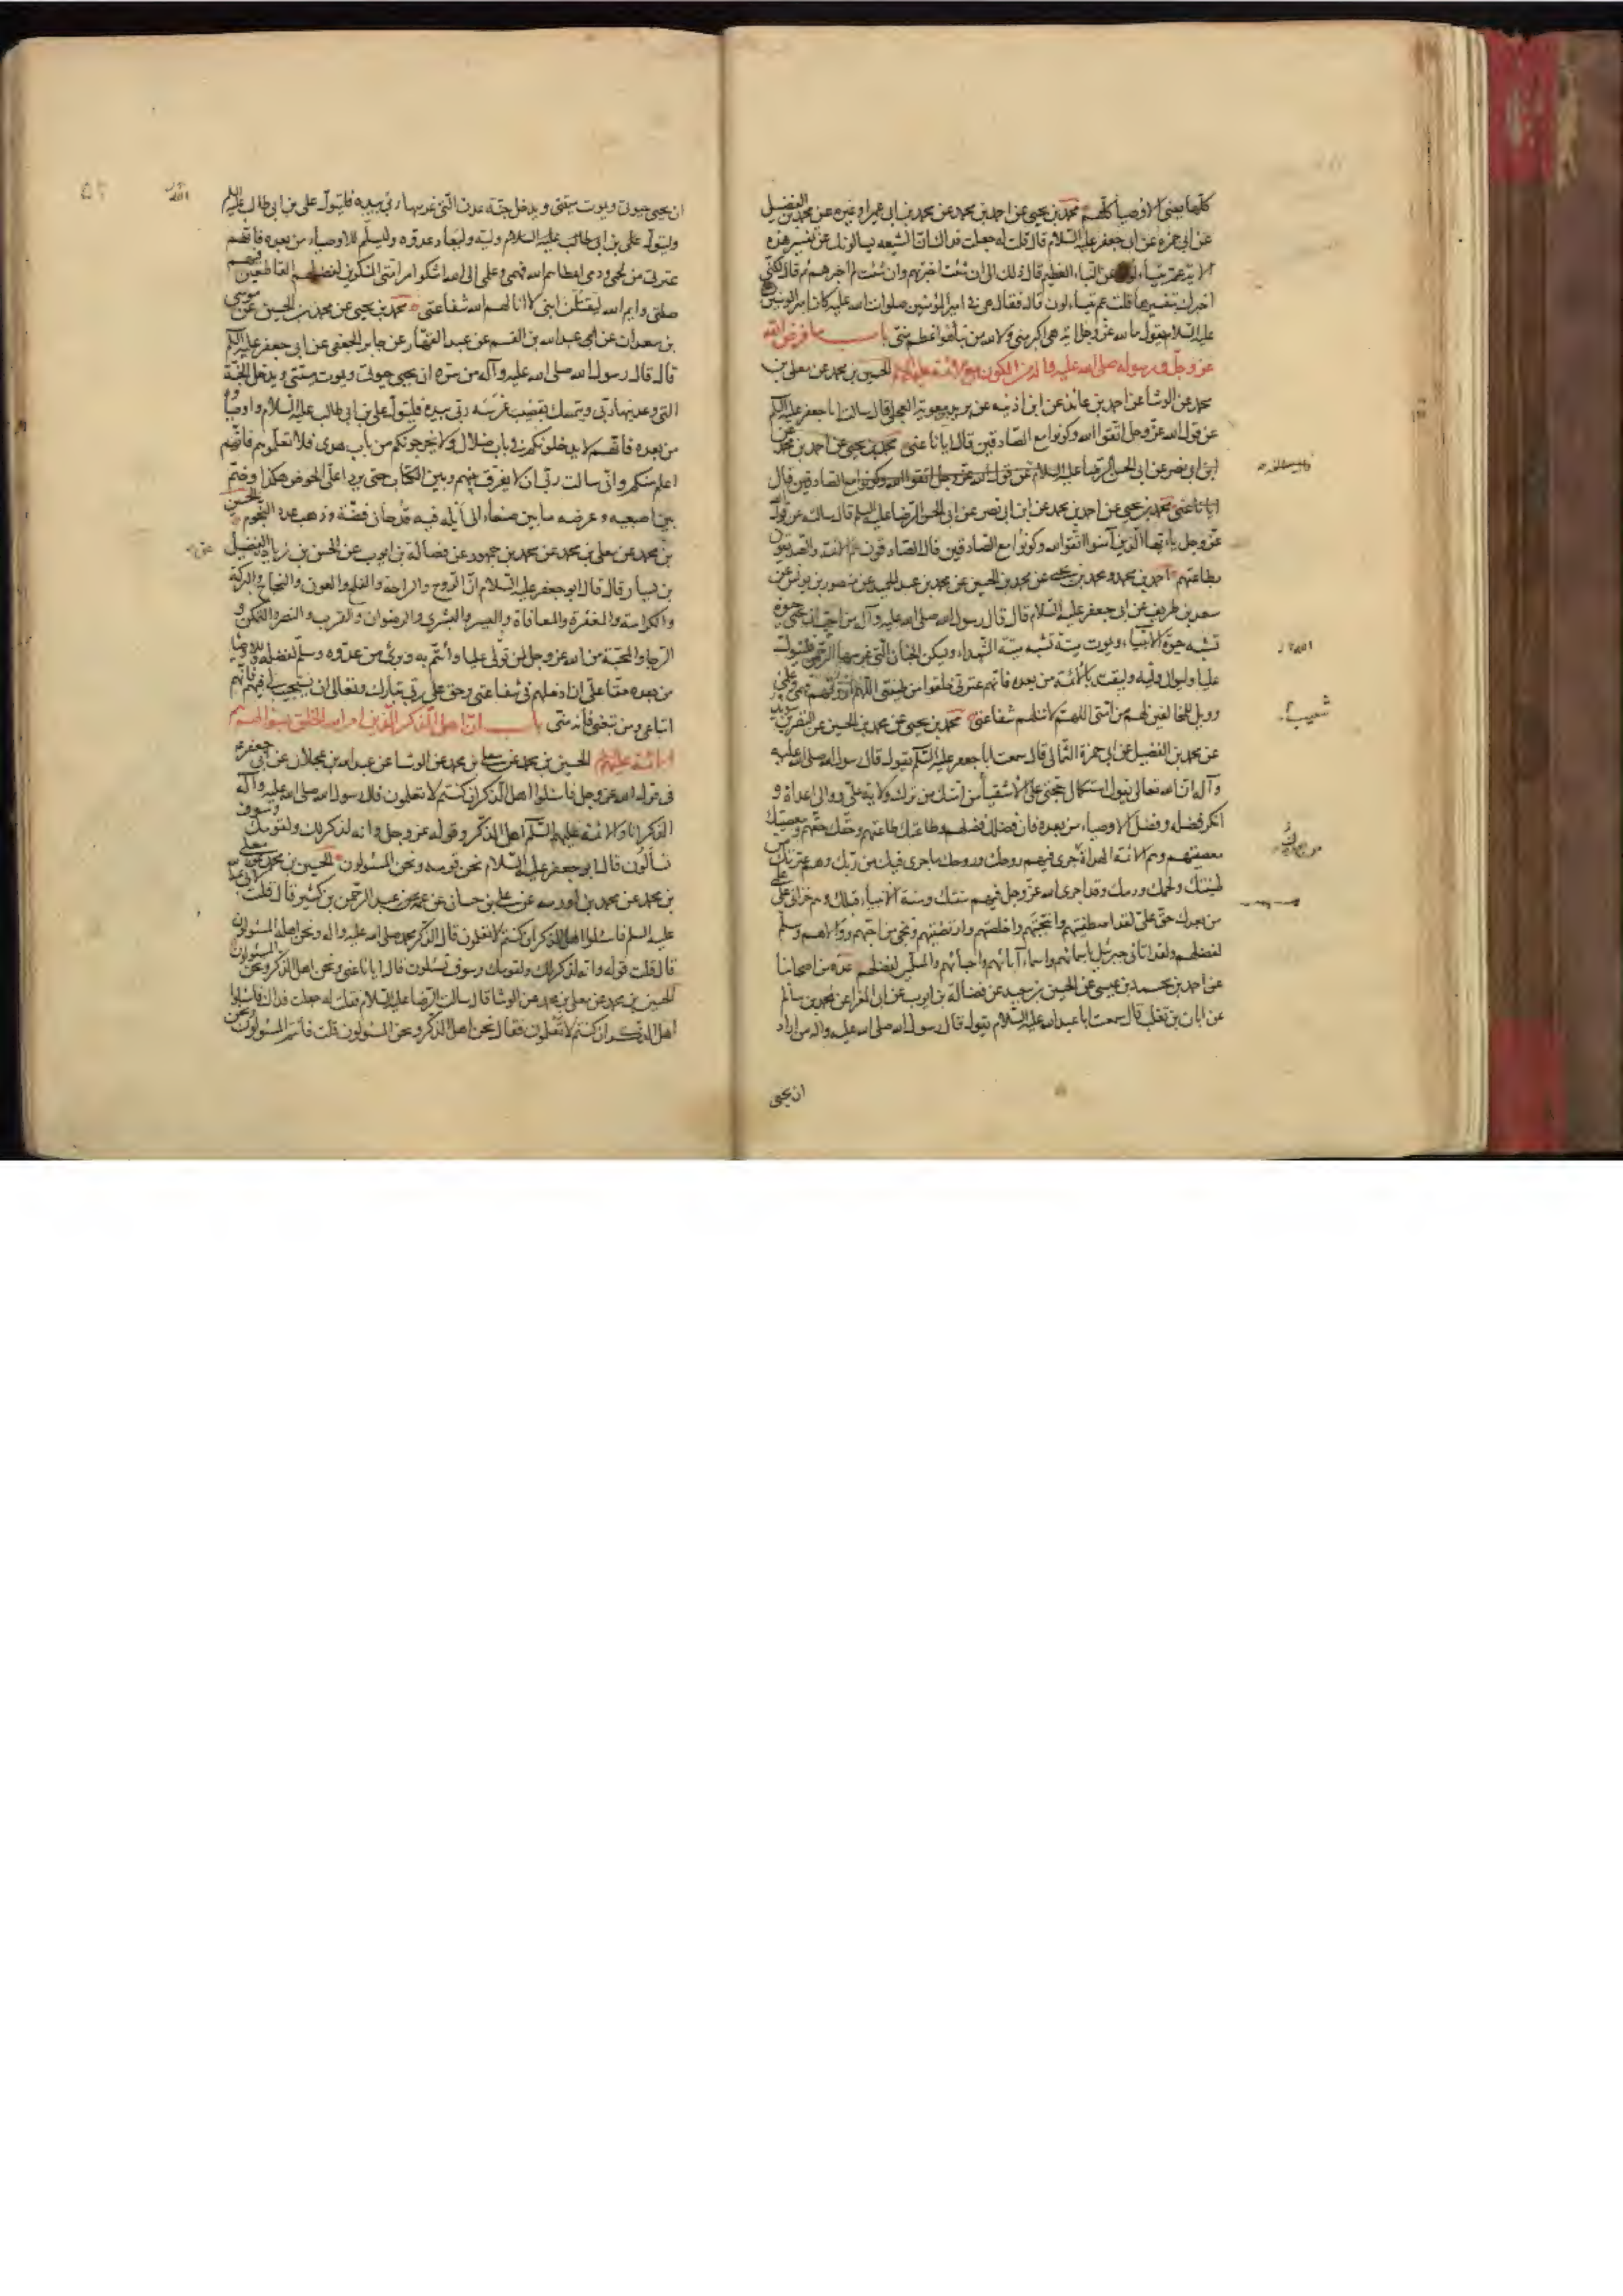 كلها يعني الاوصيا كلهم محمد بن يحيى عن احمد بن محمد عن محمد بن ابي عمير او غيره عن محمد بن الفضيل
عن ابي حمزه عن ابي جعفر عليه السلام قال قلت له جعلت فداك ان الشيعه يسالونك عن تفسير هذه
الاية عم يتساءلون عن النباء العظيم قال ذلك الي ان شئت اخبرتهم وان شئت لم اخبرهم ثم قال لكني
اخبرك بتفسيرها قلت عم يتساءلون قال فقال هي في امير المؤمنين صلوات الله عليه كان امير المؤمنين
عليه السلام يقول ما لله عز وجل اية هي اكبر مني ولا لله من نبأ هو اعظم مني باب ما فرض الله
عز وجل ورسوله صلى الله عليه واله من الكون مع الائمة عليهم السلام الحسين بن محمد عن معلى بن
محمد عن الوشا عن احمد بن عائذ عن ابن اذينه عن بريد بن معوية العجلي قال سالت ابا جعفر عليه السلام
عن قول الله عز وجل اتقوا الله وكونوا مع الصادقين قال ايانا عنى محمد بن يحيى عن احمد بن محمد عن
ابن ابي نصر عن ابي الحسن الرضا عليه السلام عن قول الله عز وجل اتقوا الله وكونوا مع الصادقين قال
ايانا عنى محمد بن يحيى عن احمد بن محمد عن ابن ابي نصر عن ابي الحسن الرضا عليه السلم قال سالته عن قول
عز وجل يا ايها الذين آمنوا اتقوا الله وكونوا مع الصادقين قال الصادقون هم الائمة والصديقون
بطاعتهم احمد بن محمد ومحمد بن يحيى عن محمد بن الحسين عن محمد بن عبد الحميد عن منصور بن يونس عن
سعد بن طريف عن ابي جعفر عليه السلام قال قال رسول الله صلى الله عليه وآله من احب ان يحيى حيوة
تشبه حيوة الانبياء ويموت ميتة تشبه ميتة الشهداء ويسكن الجنان التي غرسها الرحمن فليتول
عليا وليوال وليه وليقتد بالائمة من بعده فانهم عترتي خلقوا من طينتي اللهم ارزقهم فهمي وعلمي
وويل للمخالفين لهم من امتي اللهم لا تنلهم شفاعتي محمد بن يحيى عن محمد بن الحسين عن النضر بن سويد
عن محمد بن الفضيل عن ابي حمزة الثمالي قال سمعت ابا جعفر عليه السلم يقول قال رسول الله صلى الله عليه
وآله ان الله تعالى يقول استكمال حجتي على الاشقيأ من امتك من ترك ولاية علي ووالى اعداءه و
انكر فضله وفضل الاوصياء من بعده فان فضلك فضلهم وطاعتك طاعتهم وحقك حقهم ومعصيتك
معصيتهم وهم الائمة الهداة جرى فيهم روحك وروحك ما جرى فيك من ربك وهم عترتك من
طينتك ولحمك ودمك وقد اجرى الله عز وجل فيهم سنتك وسنة الانبياء قبلك وهم خزاني على علمي
من بعدك حق علي لقد اصطفيتهم وانتجبتهم واخلصتهم وارتضيتهم ونجى من احبهم ووالاهم وسلم
لفضلهم ولقد اتاني جبرئيل باسمائهم واسماء آبائهم واحبائهم والمسلمين لفضلهم عدة من اصحابنا
عن احمد بن محمد بن عيسى عن الحسين بن سعيد عن فضالة بن ايوب عن ابي المغرا عن محمد بن سالم
عن ابان بن تغلب قال سمعت ابا عبد الله عليه السلام يقول قال رسول الله صلى الله عليه واله من اراد
ان يحيى
شعيب
ان يحيى حيوتي ويموت ميتتي ويدخل جنة عدن التي غرسها ربي بيده فليتول علي بن ابي طالب عليه السلم
وليتول علي بن ابي طالب عليه السلام وليه وليعاد عدوه وليسلم للاوصياء من بعده فانهم
عترتي من لحمي ودمي اعطاهم الله فهمي وعلمي الى الله اشكوا امر امتي المنكرين لفضلهم القاطعين فيهم
صلتي وايم الله ليقتلن ابني لا انالهم الله شفاعتي محمد بن يحيى عن محمد بن الحسين عن موسى
بن سعدان عن عبد الله بن القسم عن عبد القهار عن جابر الجعفي عن ابي جعفر عليه السلم
قال قال رسول الله صلى الله عليه وآله من سره ان يحيى حيوتي ويموت ميتتي ويدخل الجنة
التي وعدنيها ربي ويتمسك بقضيب غرسه ربي بيده فليتول علي بن ابي طالب عليه السلام واوصياءه
من بعده فانهم لا يدخلونكم في باب ضلال ولا يخرجونكم من باب هدى فلا تعلموهم فانهم
اعلم منكم واني سالت ربي ان لا يفرق بينهم وبين الكتاب حتى يردا على الحوض هكذا وضم
بين اصبعيه وعرضه ما بين صنعاء الى أيله فيه قدحان فضة وذهب عدد النجوم الحسين
بن محمد عن معلى بن محمد عن محمد بن جمهور عن فضالة بن ايوب عن الحسن بن زياد عن الفضيل
بن يسار قال قال ابو جعفر عليه السلام ان الروح والراحة والفلج والعون والنجاح والبركة
والكرامة والمغفرة والمعافاة واليسر والبشرى والرضوان والقرب والنصر والتمكن و
الرجا والمحبة من الله عز وجل لمن تولى عليا وائتم به وبرئ من عدوه وسلم لفضله وللاوصيا
من بعده حقا علي ان ادخلهم في شفاعتي وحق على ربي تبارك وتعالى ان يستجيب لي فيهم فانهم
اتباعي ومن تبعني فانه مني باب ان اهل الذكر الذين امر الله الخلق بسؤالهم هم
الائمة عليهم الحسين بن محمد عن معلى بن محمد عن الوشا عن عبد الله بن عجلان عن ابي جعفر ع
في قول الله عز وجل فاسئلوا اهل الذكر ان كنتم لا تعلمون قال رسول الله صلى الله عليه وآله
الذكر انا والائمة عليهم السلم اهل الذكر وقوله عز وجل وانه لذكر لك ولقومك وسوف
تسألون قال ابو جعفر عليه السلام نحن قومه ونحن المسئولون الحسين بن محمد عن معلى
بن محمد عن محمد بن اورمه عن علي بن حسان عن عمه عبد الرحمن بن كثير قال قلت لابي عبد الله
عليه السلم فاسئلوا اهل الذكر ان كنتم لا تعلمون قال الذكر محمد صلى الله عليه واله ونحن اهله المسئولون
قال قلت قوله وانه لذكر لك ولقومك وسوف تسئلون قال ايانا عنى ونحن اهل الذكر ونحن المسئولون
الحسين بن محمد عن معلى بن محمد عن الوشا قال سالت الرضا عليه السلام فقلت له جعلت فداك فاسئلوا
اهل الذكر ان كنتم لا تعلمون فقال نحن اهل الذكر ونحن المسئولون قلت فانتم المسئولون ونحن